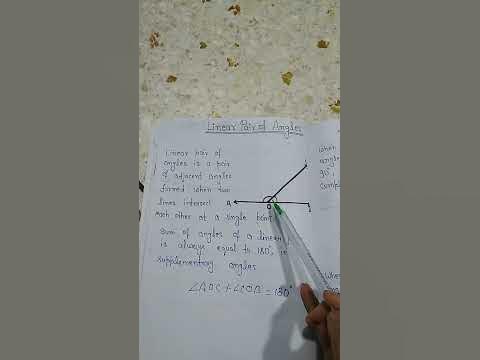 Linear Pair of Angles
Linear pair of
angles is a pair
of adjacent angles
formed when two
lines intersect
each other at a single point
sum of angles of a linear
is always equal to 180°, i.e
supplementary angles
∠AOC + ∠COB = 180°
A
O
when
angle
90°
comple
When